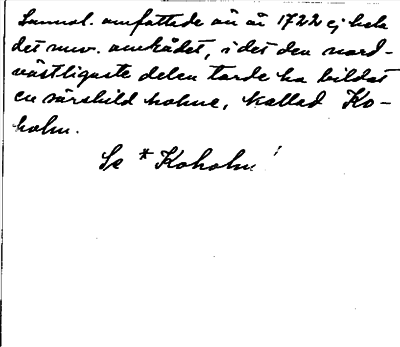 Sannol. omfattade än år 1722 ej hela
det nuv. området, i det den nord-
västligaste delen torde ha bildat
en särskild holme, kallad Ko-
holm.
Se * Koholm'